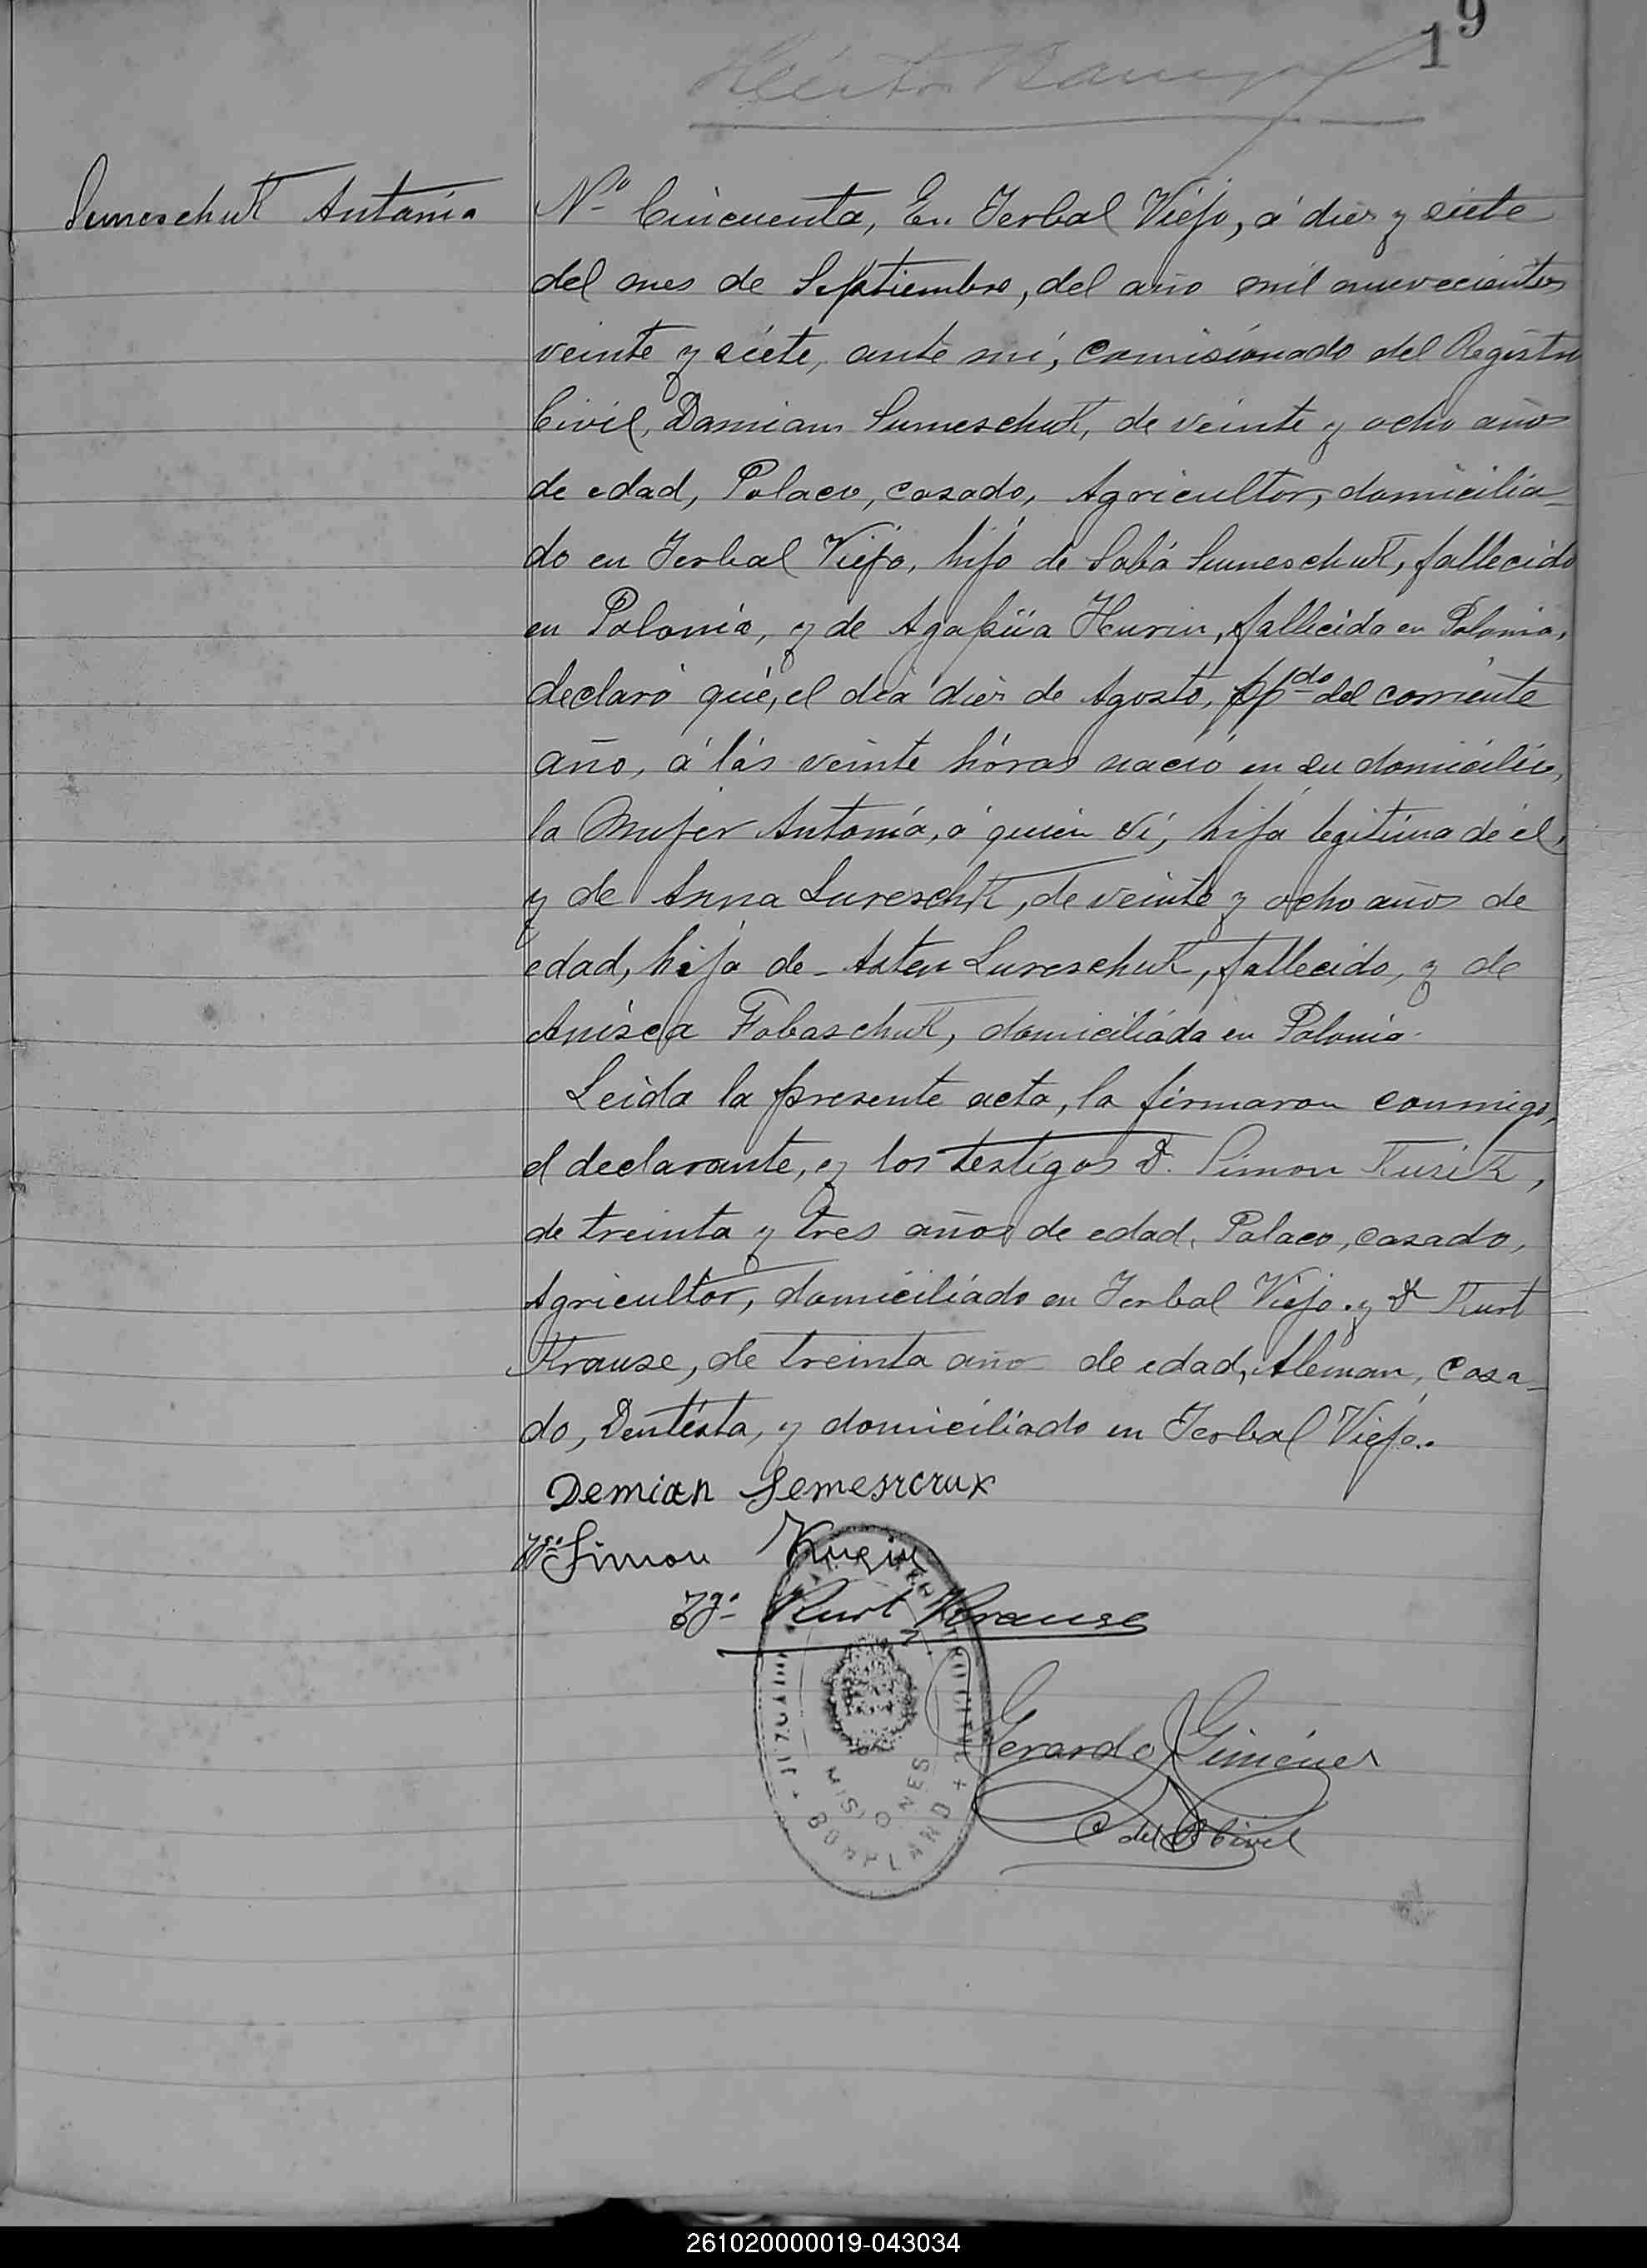 19
Sumeschuk Antonia
Nº Cincuenta, En Yerbal Viejo, á diez y siete
del mes de Septiembre, del año mil nuevecientos
veinte y siete, ante mí, comisionado del Registro
Civil, Damian Sumeschuk, de veinte y ocho años
de edad, Polaco, casado, Agricultor, domicilia-
do en Yerbal Viejo, hijo de Sabá Sumeschuk, fallecido
en Polonia, y de Agapüa Hurin, fallecida en Polonia,
declaró que, el día diez de Agosto, ppdo del corriente
año, á las veinte horas nació en su domicilio,
la Mujer Antonia, á quien ví, hija legitima de él,
y de Anna Lureschk, de veinte y ocho años de
edad, hija de Asten Lureschuk, fallecido, y de
Anisca Fobaschuk, domiciliada en Polonia.
Leida la presente acta, la firmaron conmigo,
el declarante, y los testigos D. Simon Kusik,
de treinta y tres años de edad, Polaco, casado,
Agricultor, domiciliado en Yerbal Viejo. y Dn Kurt
Krause, de treinta año de edad, Aleman, casa-
do, Dentista, y domiciliado en Yerbal Viejo..
Demian Semesrcrux
Tgo Simon
Tgo Kurt Krause
Gerardo Giménez
MISIONES
BONPLAND
C del R Civil
261020000019-043034